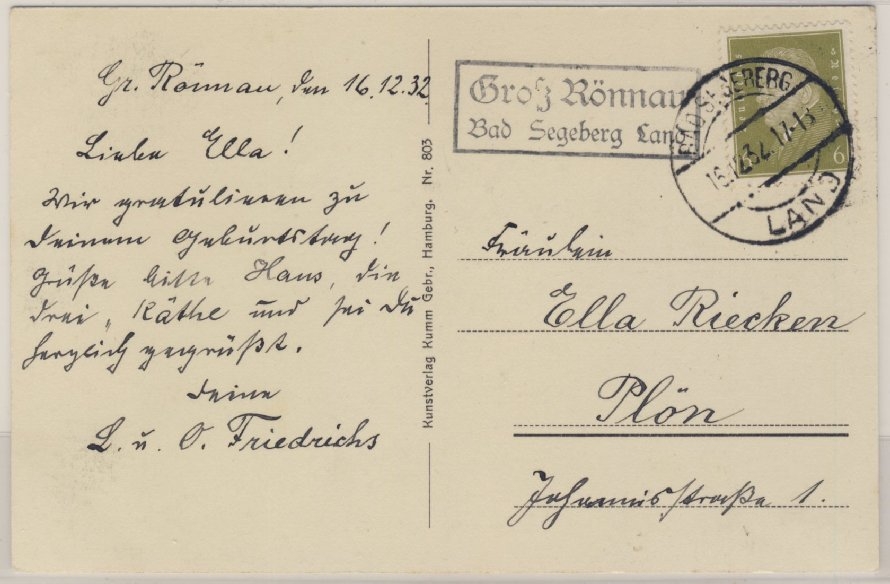 Gr. Rönnau, den 16.12.32
Liebe Ella!
Wir gratulieren zu
Deinem Geburtstag!
Grüße bitte Hans, die
drei, Käthe und sei Du
herzlich gegrüßt.
Deine
L. u. O. Friedrichs
Kunstverlag Kumm Gebr., Hamburg. Nr. 803
Groß Rönnau
Bad Segeberg Land
BAD SEGEBERG
16.12.32.17-18
LAND
6
Fräulein
Ella Riecken
Plön
Johannisstraße 1.